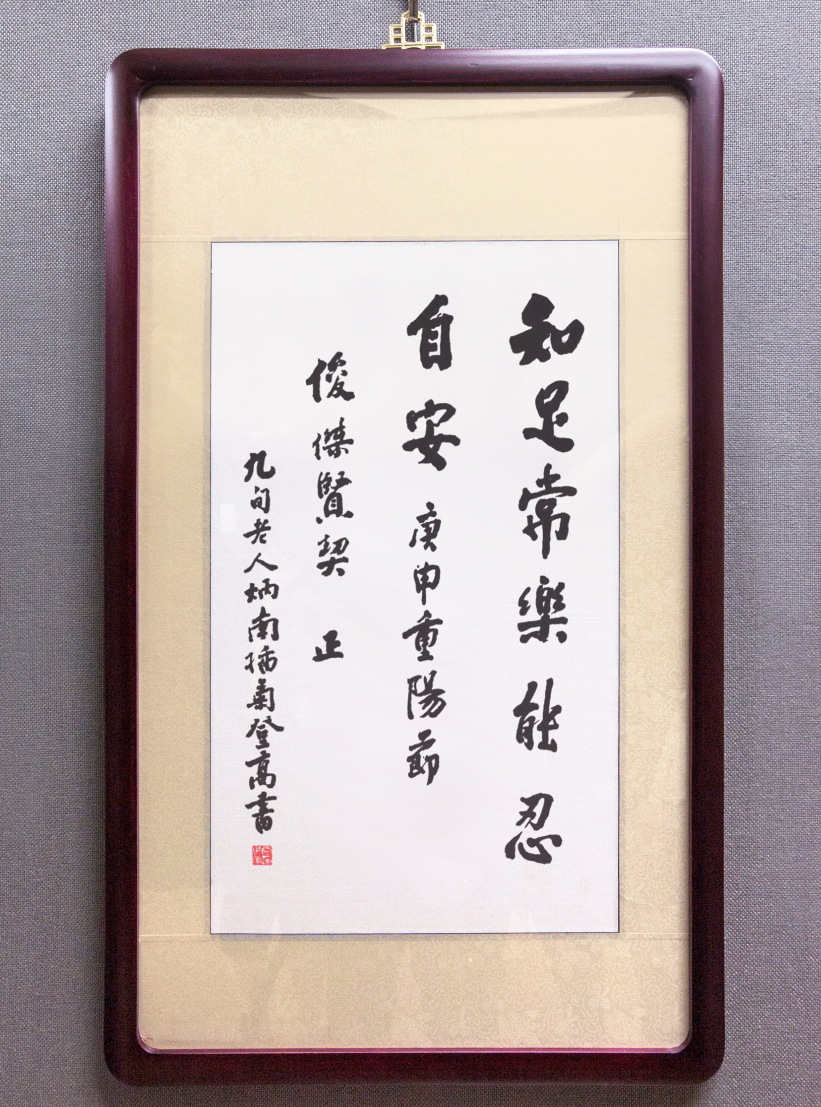 知足常樂能忍
自安庚申重陽節
俊傑賢契 正
九旬老人炳南插菊登高書